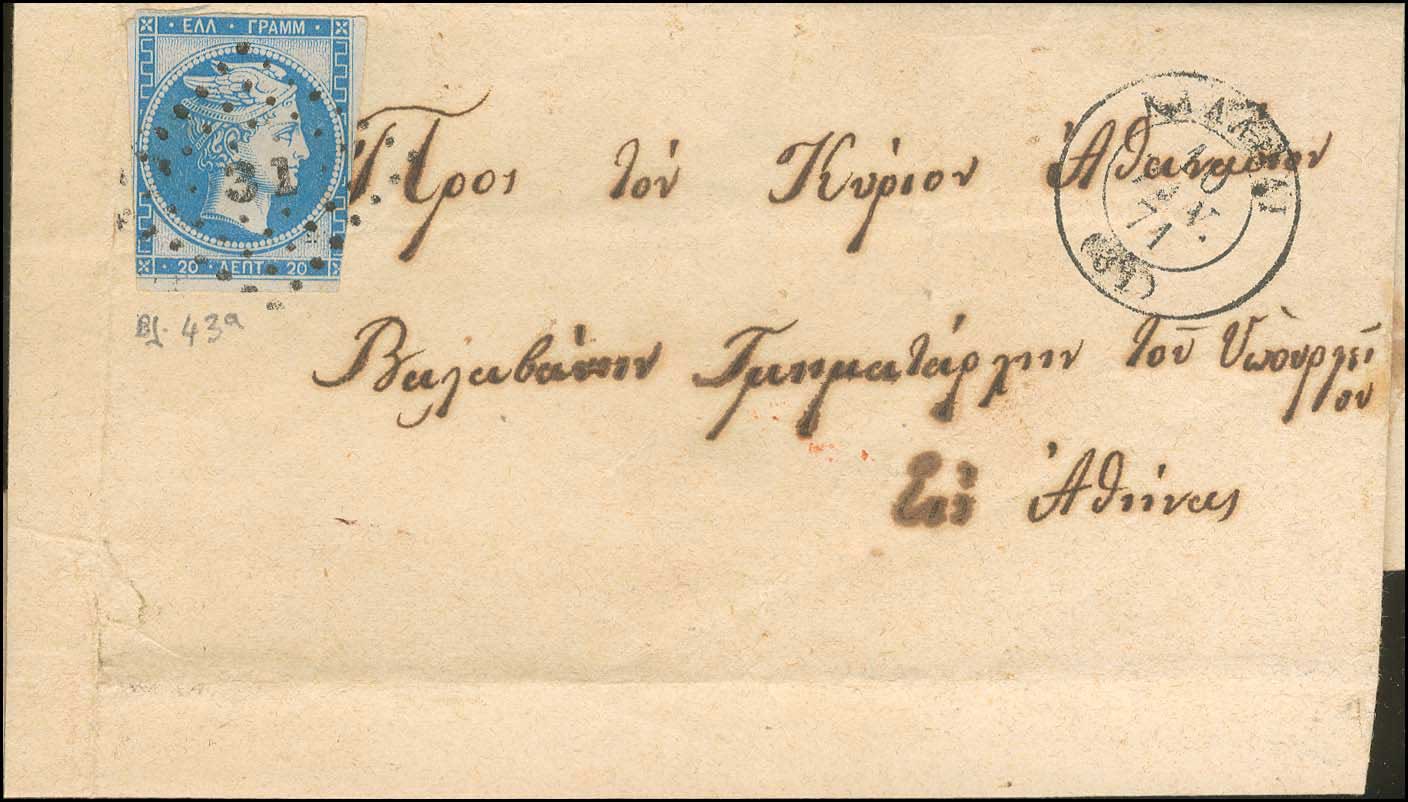 ΕΛΛ · ΓΡΑΜΜ
31
20 ΛΕΠΤ 20
71
(31)
Bf. 43a
Προς τὸν Κύριον Ἀθανάσιον
Βαλαβάνην Τμηματάρχην τοῦ Ὑπουργεί
ου
Εἰς Ἀθήνας